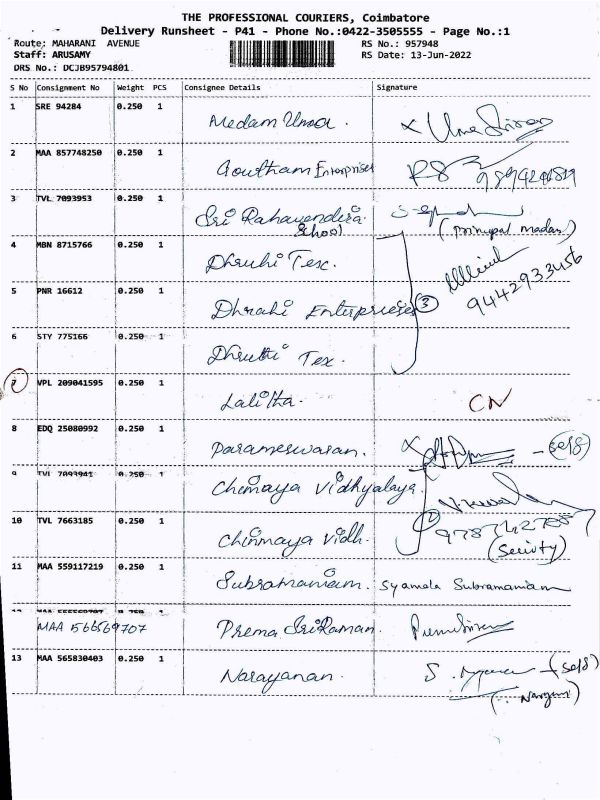 THE PROFESSIONAL COURIERS, Coimbatore
Delivery Runsheet - P41 - Phone No.:0422-3505555 - Page No.:1
Route: MAHARANI AVENUE RS No.: 957948
Staff: ARUSAMY RS Date: 13-Jun-2022
DRS No.: DCJB95794801
S No Consignment No Weight PCS Consignee Details Signature
1 SRE 94284 0.250 1 Medam Uma. x Uma
2 MAA 857748250 0.250 1 Goutham Enterprises RS
3 TVL 7093953 0.250 1 Sri Rahavendira School (Principal madam)
4 MBN 8715766 0.250 1 Dhruhi Tex.
9442933456
5 PNR 16612 0.250 1 Dhrahi Enterprieses 3
6 STY 775166 0.250 1 Dhruthi Tex.
7 VPL 209041595 0.250 1 Lalitha. CN
8 EDQ 25080992 0.250 1 Parameswaran. x - (self)
9 TVL 7093941 0.250 1 Chimaya Vidhyalaya.
10 TVL 7663185 0.250 1 Chinmaya Vidh. 2
(Secioty)
11 MAA 559117219 0.250 1 Subramaniam. Syamala Subramaniam
MAA 566569707 Prema SriRaman.
13 MAA 565830403 0.250 1 Narayanan. S. - (self)